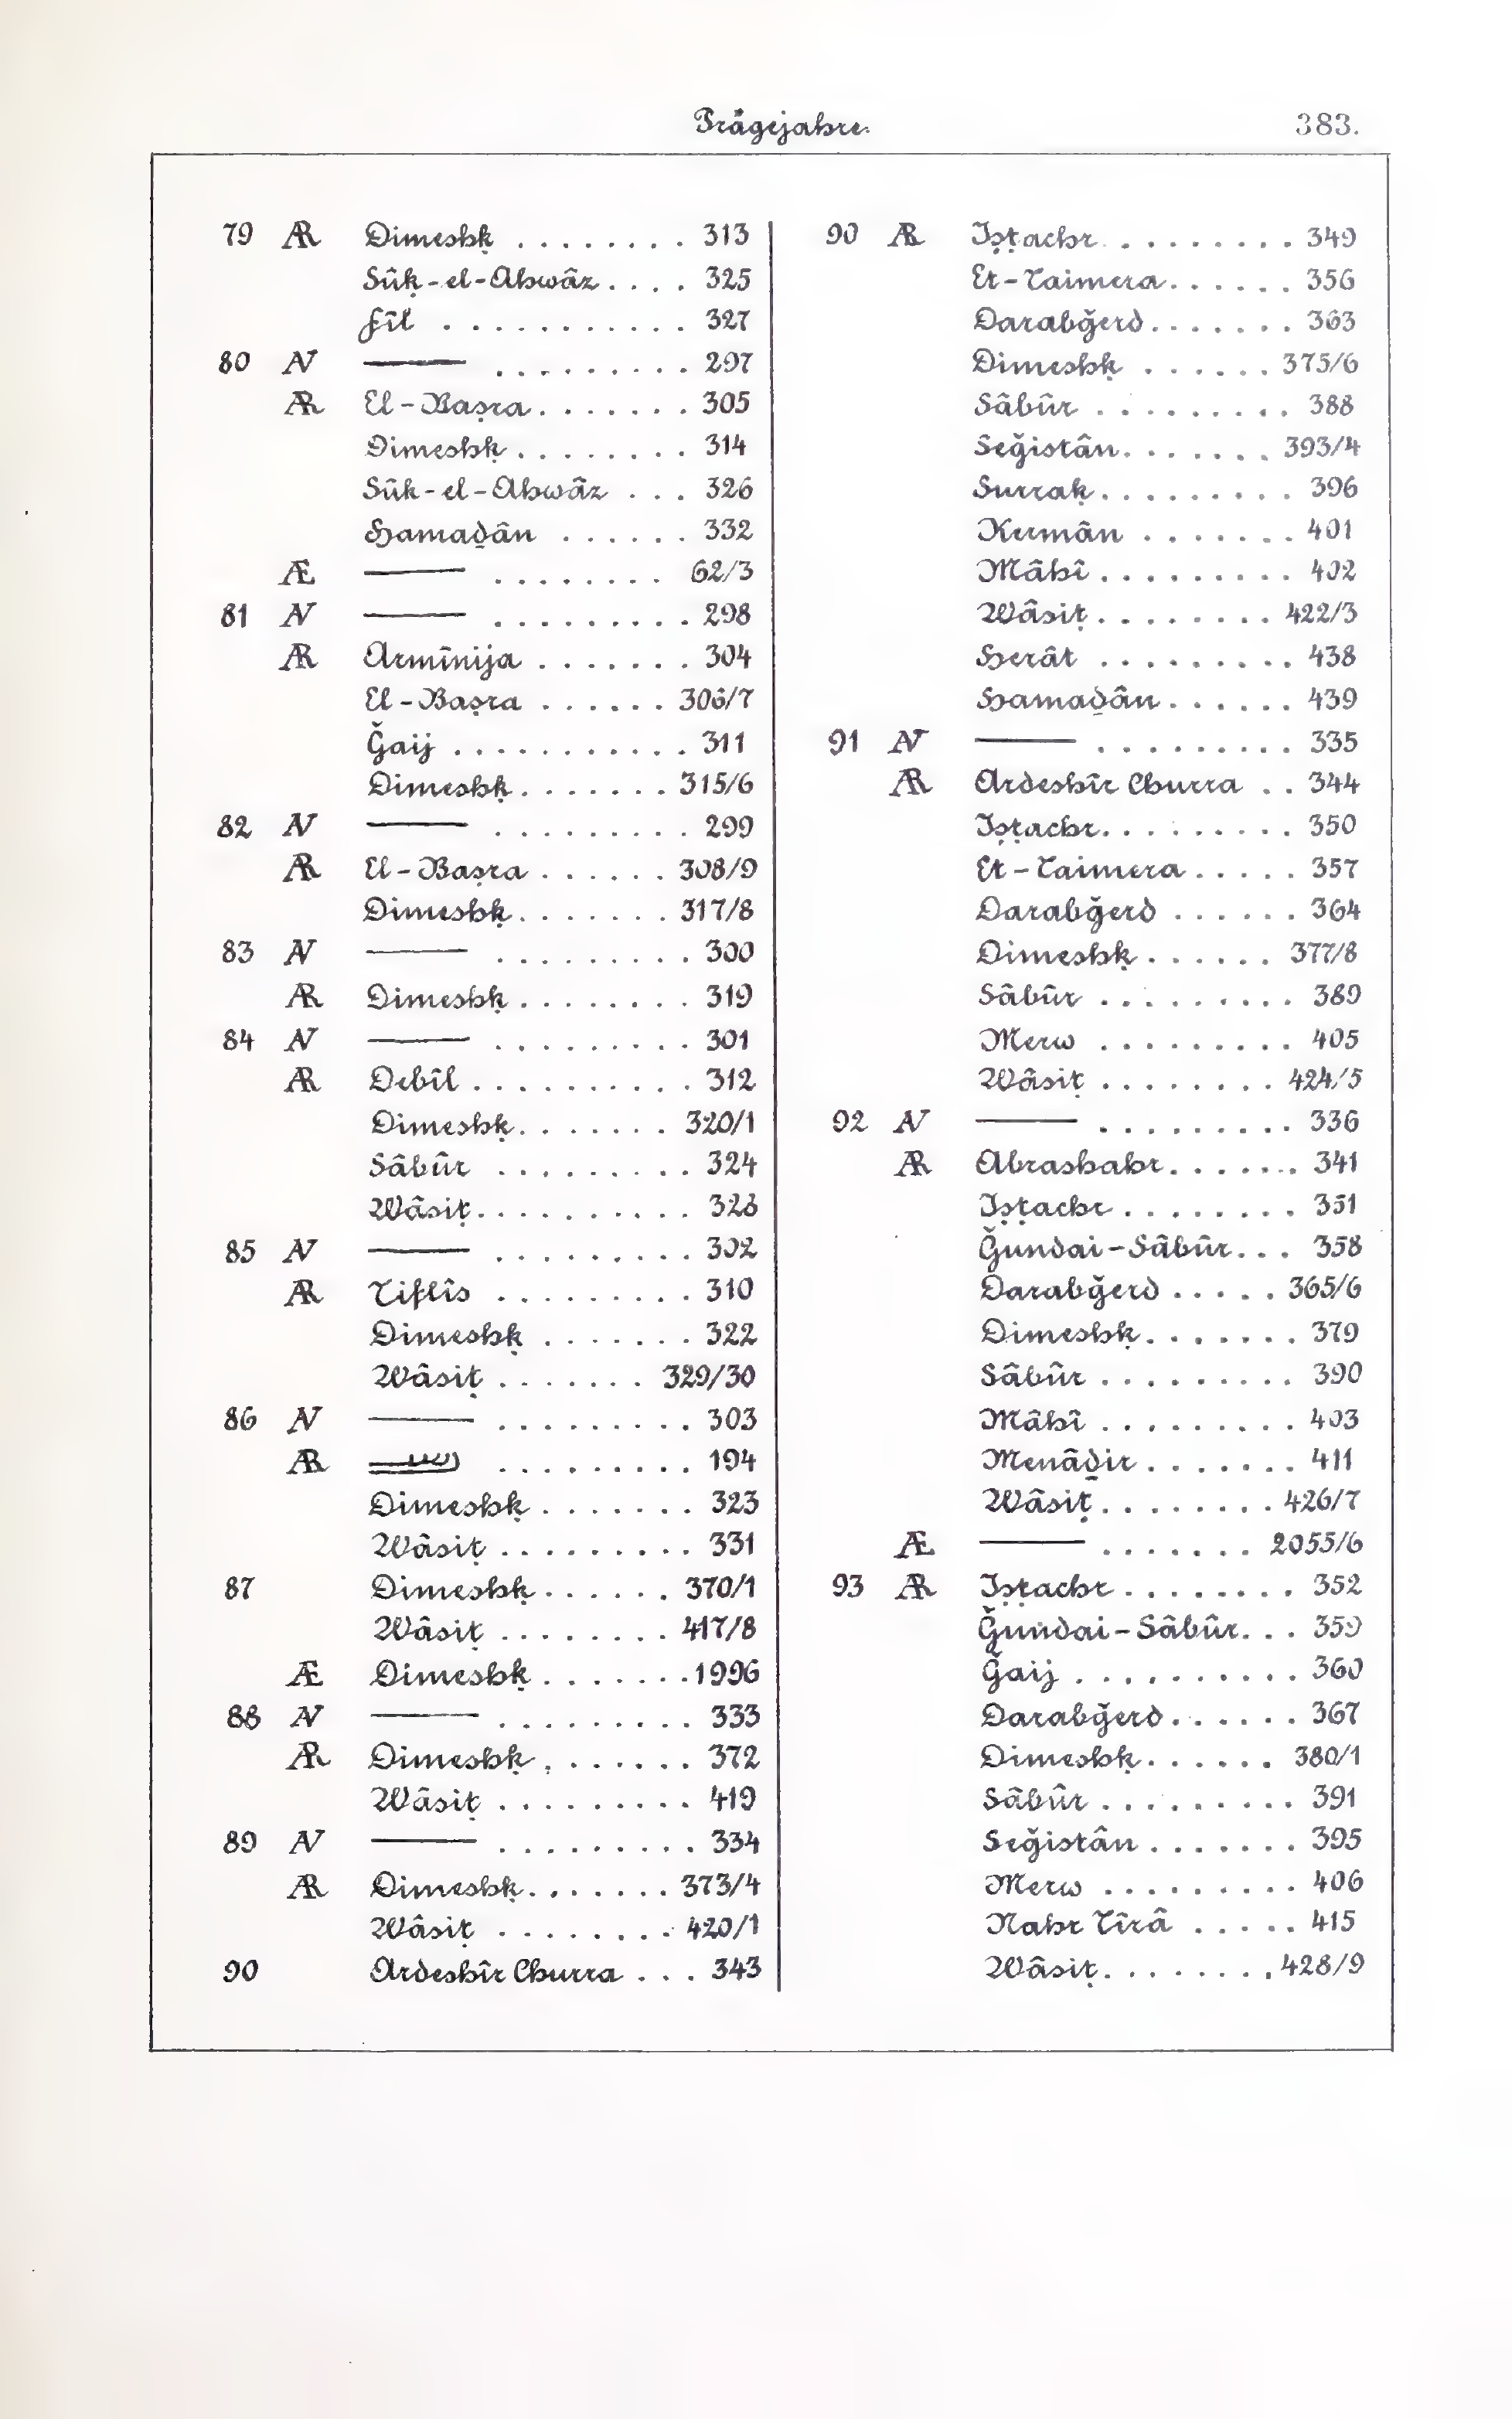 Prägejahre.
383.
79 AR Dimeshḳ ........ 313
Sûḳ-el-Ahwâz .... 325
Fîl ........... 327
80 AV ——— ......... 297
AR El-Baṣra ....... 305
Dimeshḳ ........ 314
Sûḳ-el-Ahwâz ... 326
Hamaḏân ...... 332
Æ ——— ........ 62/3
81 AV ——— ......... 298
AR Armînija ....... 304
El-Baṣra ...... 306/7
Ǧaij ........... 311
Dimeshḳ ....... 315/6
82 AV ——— ......... 299
AR El-Baṣra ...... 308/9
Dimeshḳ ....... 317/8
83 AV ——— ......... 300
AR Dimeshḳ ........ 319
84 AV ——— ......... 301
AR Debîl .......... 312
Dimeshḳ ....... 320/1
Sâbûr ......... 324
Wâsiṭ .......... 328
85 AV ——— ......... 302
AR Tiflîs ......... 310
Dimeshḳ ....... 322
Wâsiṭ ....... 329/30
86 AV ——— ......... 303
AR ......... 194
Dimeshḳ ....... 323
Wâsiṭ ......... 331
87 Dimeshḳ ...... 370/1
Wâsiṭ ........ 417/8
Æ Dimeshḳ ....... 1996
88 AV ——— ......... 333
AR Dimeshḳ ....... 372
Wâsiṭ ......... 419
89 AV ——— ......... 334
AR Dimeshḳ ....... 373/4
Wâsiṭ ........ 420/1
90 Ardeshîr Churra ... 343
90 AR Iṣṭachr ......... 349
Et-Taimera ...... 356
Darabǧerd ....... 363
Dimeshḳ ...... 375/6
Sâbûr ......... 388
Seǧistân ....... 393/4
Surraḳ ......... 396
Kermân ....... 401
Mâhî ......... 402
Wâsiṭ ........ 422/3
Herât ......... 438
Hamaḏân ...... 439
91 AV ——— ......... 335
AR Ardeshîr Churra .. 344
Iṣṭachr ......... 350
Et-Taimera ..... 357
Darabǧerd ...... 364
Dimeshḳ ...... 377/8
Sâbûr ......... 389
Merw ......... 405
Wâsiṭ ........ 424/5
92 AV ——— ......... 336
AR Abrashahr ...... 341
Iṣṭachr ........ 351
Ǧundai-Sâbûr ... 358
Darabǧerd ..... 365/6
Dimeshḳ ....... 379
Sâbûr ......... 390
Mâhî ......... 403
Menâḏir ....... 411
Wâsiṭ ........ 426/7
Æ ——— ....... 2055/6
93 AR Iṣṭachr ........ 352
Ǧundai-Sâbûr ... 359
Ǧaij .......... 360
Darabǧerd ...... 367
Dimeshḳ ...... 380/1
Sâbûr ......... 391
Seǧistân ....... 395
Merw ......... 406
Nahr Tîrâ ..... 415
Wâsiṭ ........ 428/9